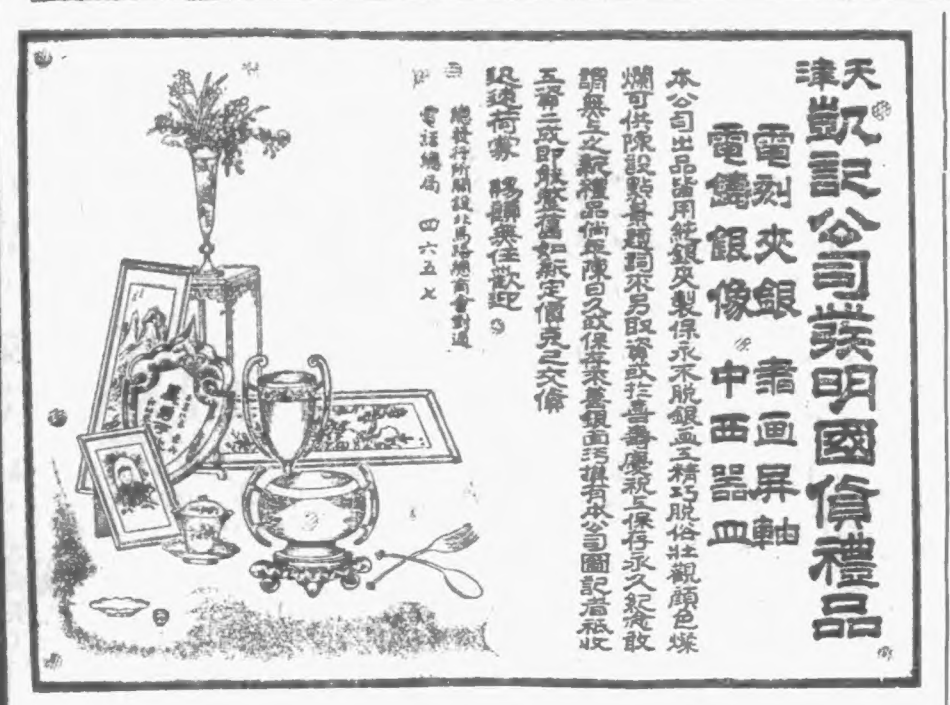 天津
凱記公司發明國貨禮品
電刻夾銀 書画屏軸
電鑄銀像 中西器皿
本公司出品皆用純銀夾製保永不脫銀画工精巧脫俗壯觀顏色燦
爛可供陳設點景題詞不另取資或於喜壽慶祝上保存永久紀念敢
謂無上之新禮品倘年陳日久欲保存來塵銀面污損有本公司圖記者祗收
工資二成即能整舊如新定價克己交傢
迅速荷蒙 賜顧無任歡迎
總發行所開設北馬路總商會對過
電話總局 四六五七